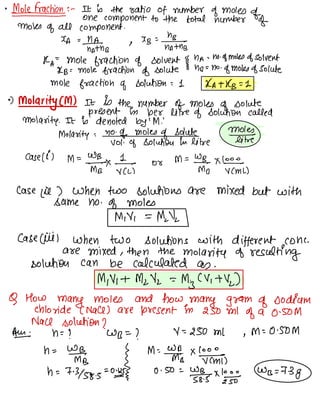 • Mole fraction :- It is the ratio of number of moles of
one component to the total number of
moles of all component.
xA = nA/nA+nB , xB = nB/nA+nB
xA = mole fraction of solvent { nA = no. of moles of solvent
xB = mole fraction of solute { nB = no. of moles of solute
mole fraction of solution = 1 xA + xB = 1
•) Molarity (M) It is the number of moles of solute
present in per litre of solution called
molarity. It is denoted by 'M.'
Molarity = no. of moles of solute / vol. of solution in litre (moles/litre)
Case(i) M = WB/MB × 1/V(L) or M = WB/MB × 1000/V(mL)
Case (ii) when two solutions are mixed but with
same no. of moles
M1V1 = M2V2
Case(iii) when two solutions with different conc.
are mixed, then the molarity of resulting
solution can be calculated as.
M1V1 + M2V2 = M3 (V1 + V2)
Q How many moles and how many gram of sodium
chloride (NaCl) are present in 250 ml of a 0.50M
NaCl solution?
Ans: n = ? WB = ? V = 250 ml , M = 0.50M
n = WB/MB M = WB/MB × 1000/V(ml)
n = 7.3/58.5 = 0.125 0.50 = WB/58.5 × 1000/250 WB = 7.3g